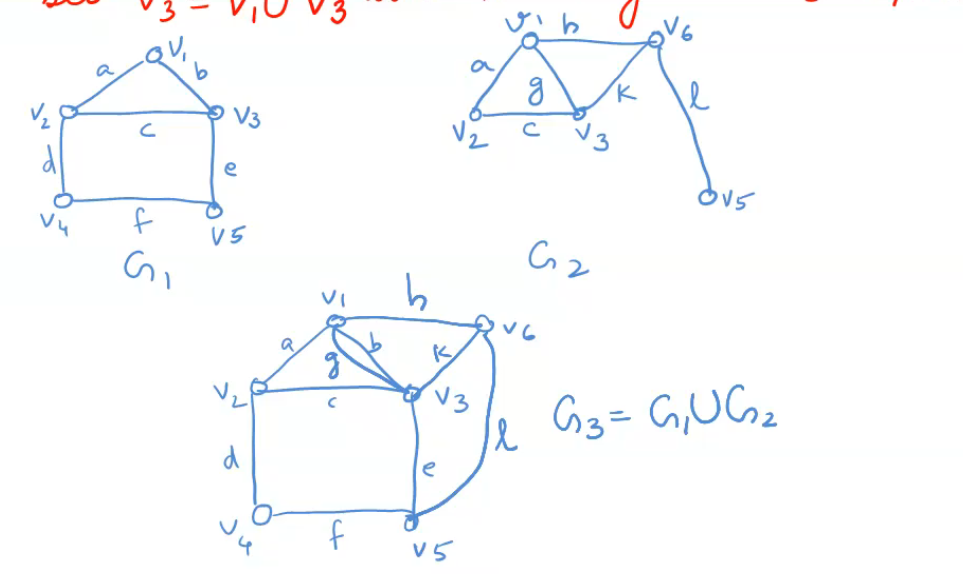 set V3 = V1 ∪ V3
V1
a
b
V2
c
V3
d
e
V4
f
V5
G1
V1
h
V6
a
g
k
l
V2
c
V3
V5
G2
V1
h
V6
a
g
b
k
V2
c
V3
d
e
l
V4
f
V5
G3 = G1 ∪ G2